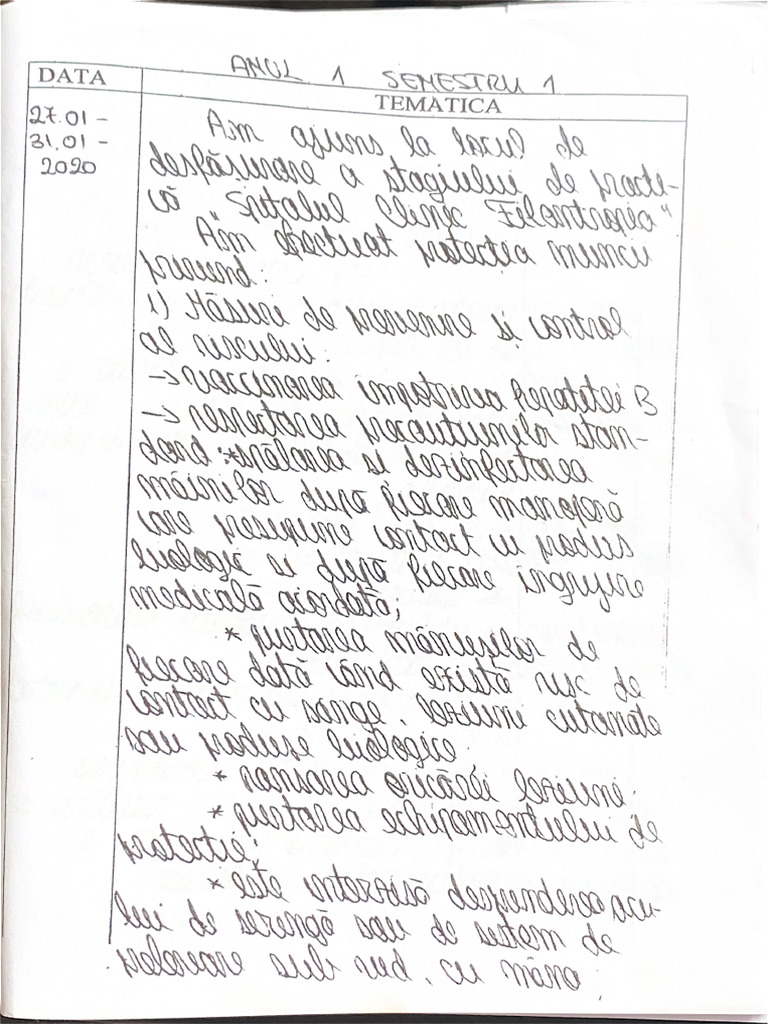 ANUL 1 SEMESTRU 1
DATA
TEMATICA
27.01 -
31.01 -
2020
Am ajuns la locul de
desfășurare a stagiului de practi-
că "Spitalul Clinic Filantropia"
Am efectuat protecția muncii
privind:
1) Măsuri de prevenire si control
al riscului:
-> vaccinarea impotriva hepatitei B
-> respectarea precautiunilor stan-
dard: *spălarea si dezinfectarea
mâinilor după fiecare manoperă
care presupune contact cu produs
biologic si după fiecare ingrijire
medicală acordată;
* purtarea mănușilor de
fiecare dată când există risc de
contact cu sange, leziuni cutanate
sau produse biologice;
* pansarea oricărei leziuni;
* purtarea echipamentului de
protectie;
* este interzisă desprinderea acu-
lui de seringă sau de sistem de
prelevare sub vid, cu mâna